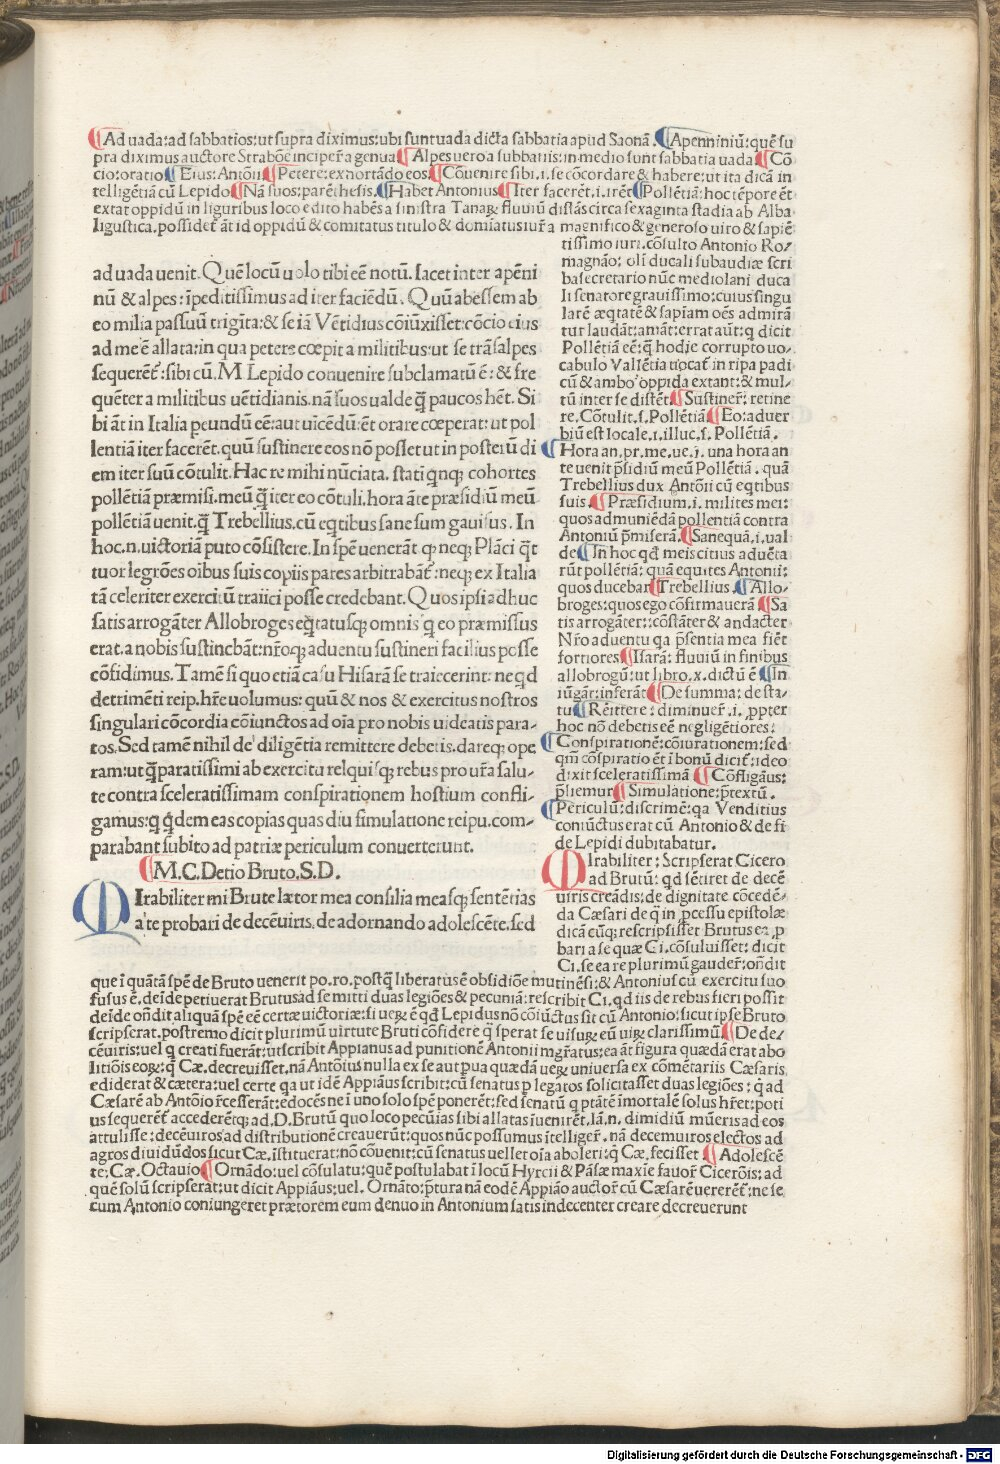 ¶Ad uada: ad sabbatios: ut supra diximus: ubi sunt uada dicta sabbatia apud Saonā. ¶Apenniniū: quē su
pra diximus auctore Strabōe incipere a genua ¶Alpes uero a subbatiis: in medio sunt sabbatia uada ¶Cō
cio: oratio ¶Eius: Antōii ¶Petere: exhortādo eos: ¶Cōuenire sibi .i. se cōcordare & habere: ut ita dicā in
telligētiā cū Lepido ¶Nā suos: parēthesis. ¶Habet Antonius ¶Iter facerēt .i. irēt ¶Pollētiā: hoc tēpore ēt
extat oppidū in liguribus loco edito habēs a sinistra Tanaꝝ fluuiū distās circa sexaginta stadia ab Alba
ligustica. possidet āt id oppidū & comitatus titulo & domiatus iur̄a magnifico & generoso uiro & sapiē
tissimo iuri. cōsulto Antonio Ro/
magnāo: oli ducali subaudiæ scri
ba secretario nūc mediolani duca
li senatore grauissimo: cuius singu
larē æqtatē & sapiam oēs admirā
tur laudāt: amāt: errat aūt: q dicit
Pollētiā eē: q̄ hodie corrupto uo/
cabulo Vallētia uocat̄ in ripa padi
cū & ambo oppida extant: & mul/
tū inter se distēt ¶Sustiner̄: retine
re. Cōtulit .s. Pollētiā ¶Eo: aduer
biū est locale .i. illuc .s. Pollētiā.
¶Hora an. pr. me. ue .i. una hora an
te uenit p̄sidiū meū Pollētiā. quā
Trebellius dux Antōii cū eqtibus
suis. ¶Præsidium .i. milites mei:
quos ad muniēdā pollentiā contra
Antoniū p̄miserā. ¶Sanequā .i. ual
de ¶In hoc qd meis citius aduēta
rūt pollētiā: quā equites Antonii:
quos ducebat Trebellius. ¶Allo/
broges: quos ego cōfirmauerā ¶Sa
tis arrogāter: cōstāter & audacter
Nr̄o aduentu qa p̄sentia mea fiēt
fortiores ¶Isarā: fluuiū in finibus
allobrogū: ut libro .x. dictū ē ¶In
iūgār: inferāt ¶De summa: de sta/
tu ¶Rēittere: diminuer̄ .i. ꝓpter
hoc nō debetis eē negligētiores:
¶Conspirationē: cōiurationem: sed
qm̄ cōspiratio ēt ī bonū dicit̄: ideo
dixit sceleratissimā ¶Cōfligāus:
p̄liemur ¶Simulatione: p̄textū.
¶Periculū: discrimē: qa Venditius
coniūctus erat cū Antonio & de fi
de Lepidi dubitabatur.
MIrabiliter: Scripserat Cicero
ad Brutū: qd sētiret de decē
uiris creādis: de dignitate cōcedē/
da Cæsari de q̄ in ꝓcessu epistolæ
dicā cūq; rescripsisset Brutus ea ꝓ
bari a se quæ Ci. cōsuluisset: dicit
Ci. se ea re plurimū gauder̄: on̄dit
ad uada uenit. Quē locū uolo tibi eē notū. Iacet inter apēni
nū & alpes: īpeditissimus ad iter faciēdū. Quū abessem ab
eo milia passuū trigīta: & se iā Vētidius cōiūxisset: cōcio eius
ad me ē allata: in qua petere cœpit a militibus: ut se trāsalpes
sequerēt̄: sibi cū. M Lepido conuenire subclamatū ē: & fre
quēter a militibus uētidianis. nā suos ualde q̄ꝫ paucos hēt. Si
bi āt in Italia peundū eē: aut uicēdū: ēt orare cœperat: ut pol
lentiā iter facerēt. quū sustinere eos nō posset ut in posterū di
em iter suū cōtulit. Hac re mihi nūciata. stati qnq; cohortes
pollētiā præmisi. meū q̄ꝫ iter eo cōtuli. hora āte præsidiū meū
pollētiā uenit. q̄ꝫ Trebellius. cū eqtibus sane sum gauisus. In
hoc .n. uictoriā puto cōsistere. In spē uenerāt qꝫ neq; Plāci q̄t
tuor legiōes oībus suis copiis pares arbitrabāt̄: neq; ex Italia
tā celeriter exercitū traiici posse credebant. Quos ipsi adhuc
satis arrogāter Allobroges eq̄tatusq; omnis q eo præmissus
erat. a nobis sustinebāt: nr̄oq; aduentu sustineri facilius posse
cōfidimus. Tamē si quo etiā casu Hisarā se traiecerint: ne qd
detrimēti reip. hr̄e uolumus: quū & nos & exercitus nostros
singulari cōcordia cōiunctos ad oīa pro nobis uideatis para/
tos. Sed tamē nihil de diligētia remittere debetis. dareq; ope
ram: ut q̄ꝫ paratissimi ab exercitu relquisq; rebus pro ur̄a salu/
te contra sceleratissimam conspirationem hostium confli/
gamus: q qdem eas copias quas diu simulatione reipu. com/
parabant subito ad patriæ periculum conuerterunt.
¶M. C. Detio Bruto. S. D.
MIrabiliter mi Brute lætor mea consilia measq; sentētias
a te probari de decēuiris. de adornando adolescēte. sed
que ī quātā spē de Bruto uenerit po. ro. postq̄ liberatus ē obsidiōe mutinēsi: & Antonius cū exercitu suo
fusus ē. deīde petiuerat Brutus ad se mitti duas legiōes & pecuniā: rescribit Ci. qd iis de rebus fieri possit
deīde on̄dit aliquā spē eē certæ uictoriæ: si ueꝝ ē qd Lepidus nō cōiūctus sit cū Antonio: sicut ipse Bruto
scripserat. postremo dicit plurimū uirtute Bruti cōfidere q̄ sperat se uisuꝝ eū uiꝝ clarissimū ¶De de/
cēuiris: uel q creati fuerāt: ut scribit Appianus ad punitionē Antonii mgr̄atus: ea āt figura quædā erat abo
litiōis eoꝝ: q̄ Cæ. decreuisset. nā Antōius nulla ex se aut pua quædā ueꝝ uniuersa ex cōmētariis Cæsaris
ediderat & cætera: uel certe qa ut idē Appiāus scribit: cū senatus ꝑ legatos solicitasset duas legiōes: q̄ ad
Cæsarē ab Antōio r̄cesserāt: edocēs ne ī uno solo spē ponerēt: sed senatū q ptātē imortalē solus hr̄et: poti
us sequerēt̄ accederētq; ad. D. Brutū quo loco pecūias sibi allatas īuenirēt. Iā. n. dimidiū mūeris ad eos
attulisse: decēuiros ad distributionē creauerūt: quos nūc possumus itelliger̄. nā decemuiros electos ad
agros diuidūdos sicut Cæ. īstituerat: nō cōuenit: cū senatus uellet oīa aboleri: q̄ Cæ. fecisset ¶Adolescē
te: Cæ. Octauio ¶Ornādo: uel cōsulatu: quē postulabat ī locū Hyrcii & Pāsæ maxīe fauor̄ Cicerōis: ad
quē solū scripserat: ut dicit Appiāus: uel. Ornāto: p̄tura nā eodē Appiāo auctor̄ cū Cæsarē uererēt̄: ne se
cum Antonio coniungeret prætorem eum denuo in Antonium satis indecenter creare decreuerunt
Digitalisierung gefördert durch die Deutsche Forschungsgemeinschaft - DFG